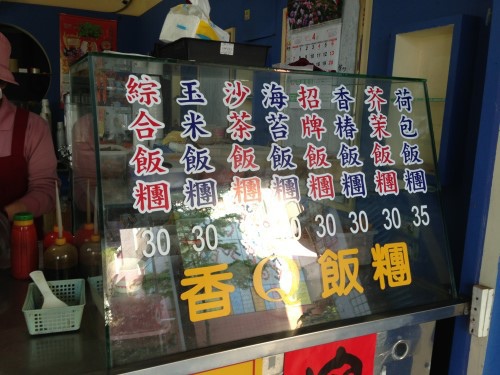 綜合飯糰
玉米飯糰
沙茶飯糰
海苔飯糰
招牌飯糰
香椿飯糰
芥茉飯糰
荷包飯糰
30 30 30 30 30 35
香Q飯糰
4